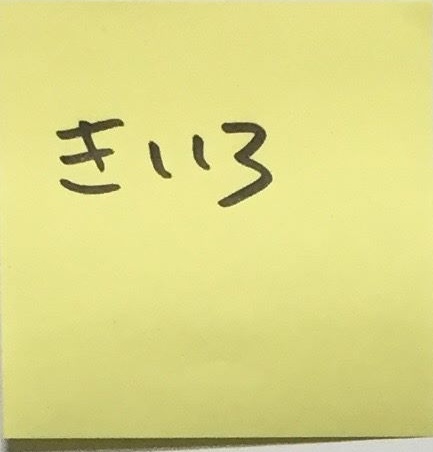 きいろ